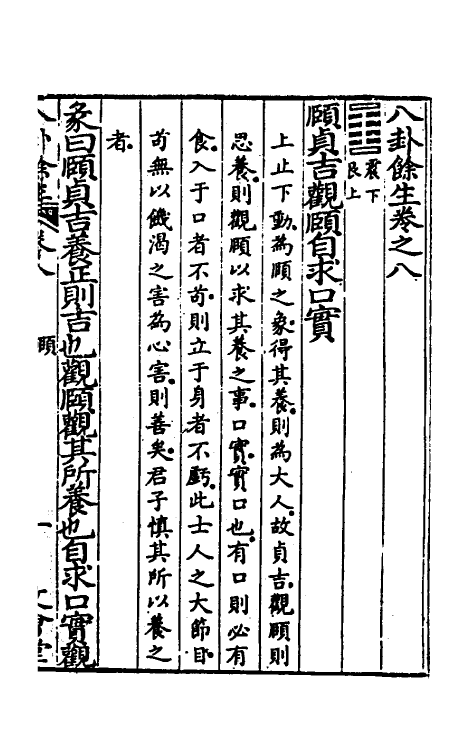 八卦餘生卷之八
震下
艮上
頤貞吉觀頤自求口實
上止下動為頤之象得其養則為大人故貞吉觀頤則
思養則觀頤以求其養之事口實實口也有口則必有
食入于口者不苟則立于身者不虧此士人之大節目
苟無以饑渴之害為心害則善矣君子慎其所以養之
者
彖曰頤貞吉養正則吉也觀頤觀其所養也自求口實觀
頤
一